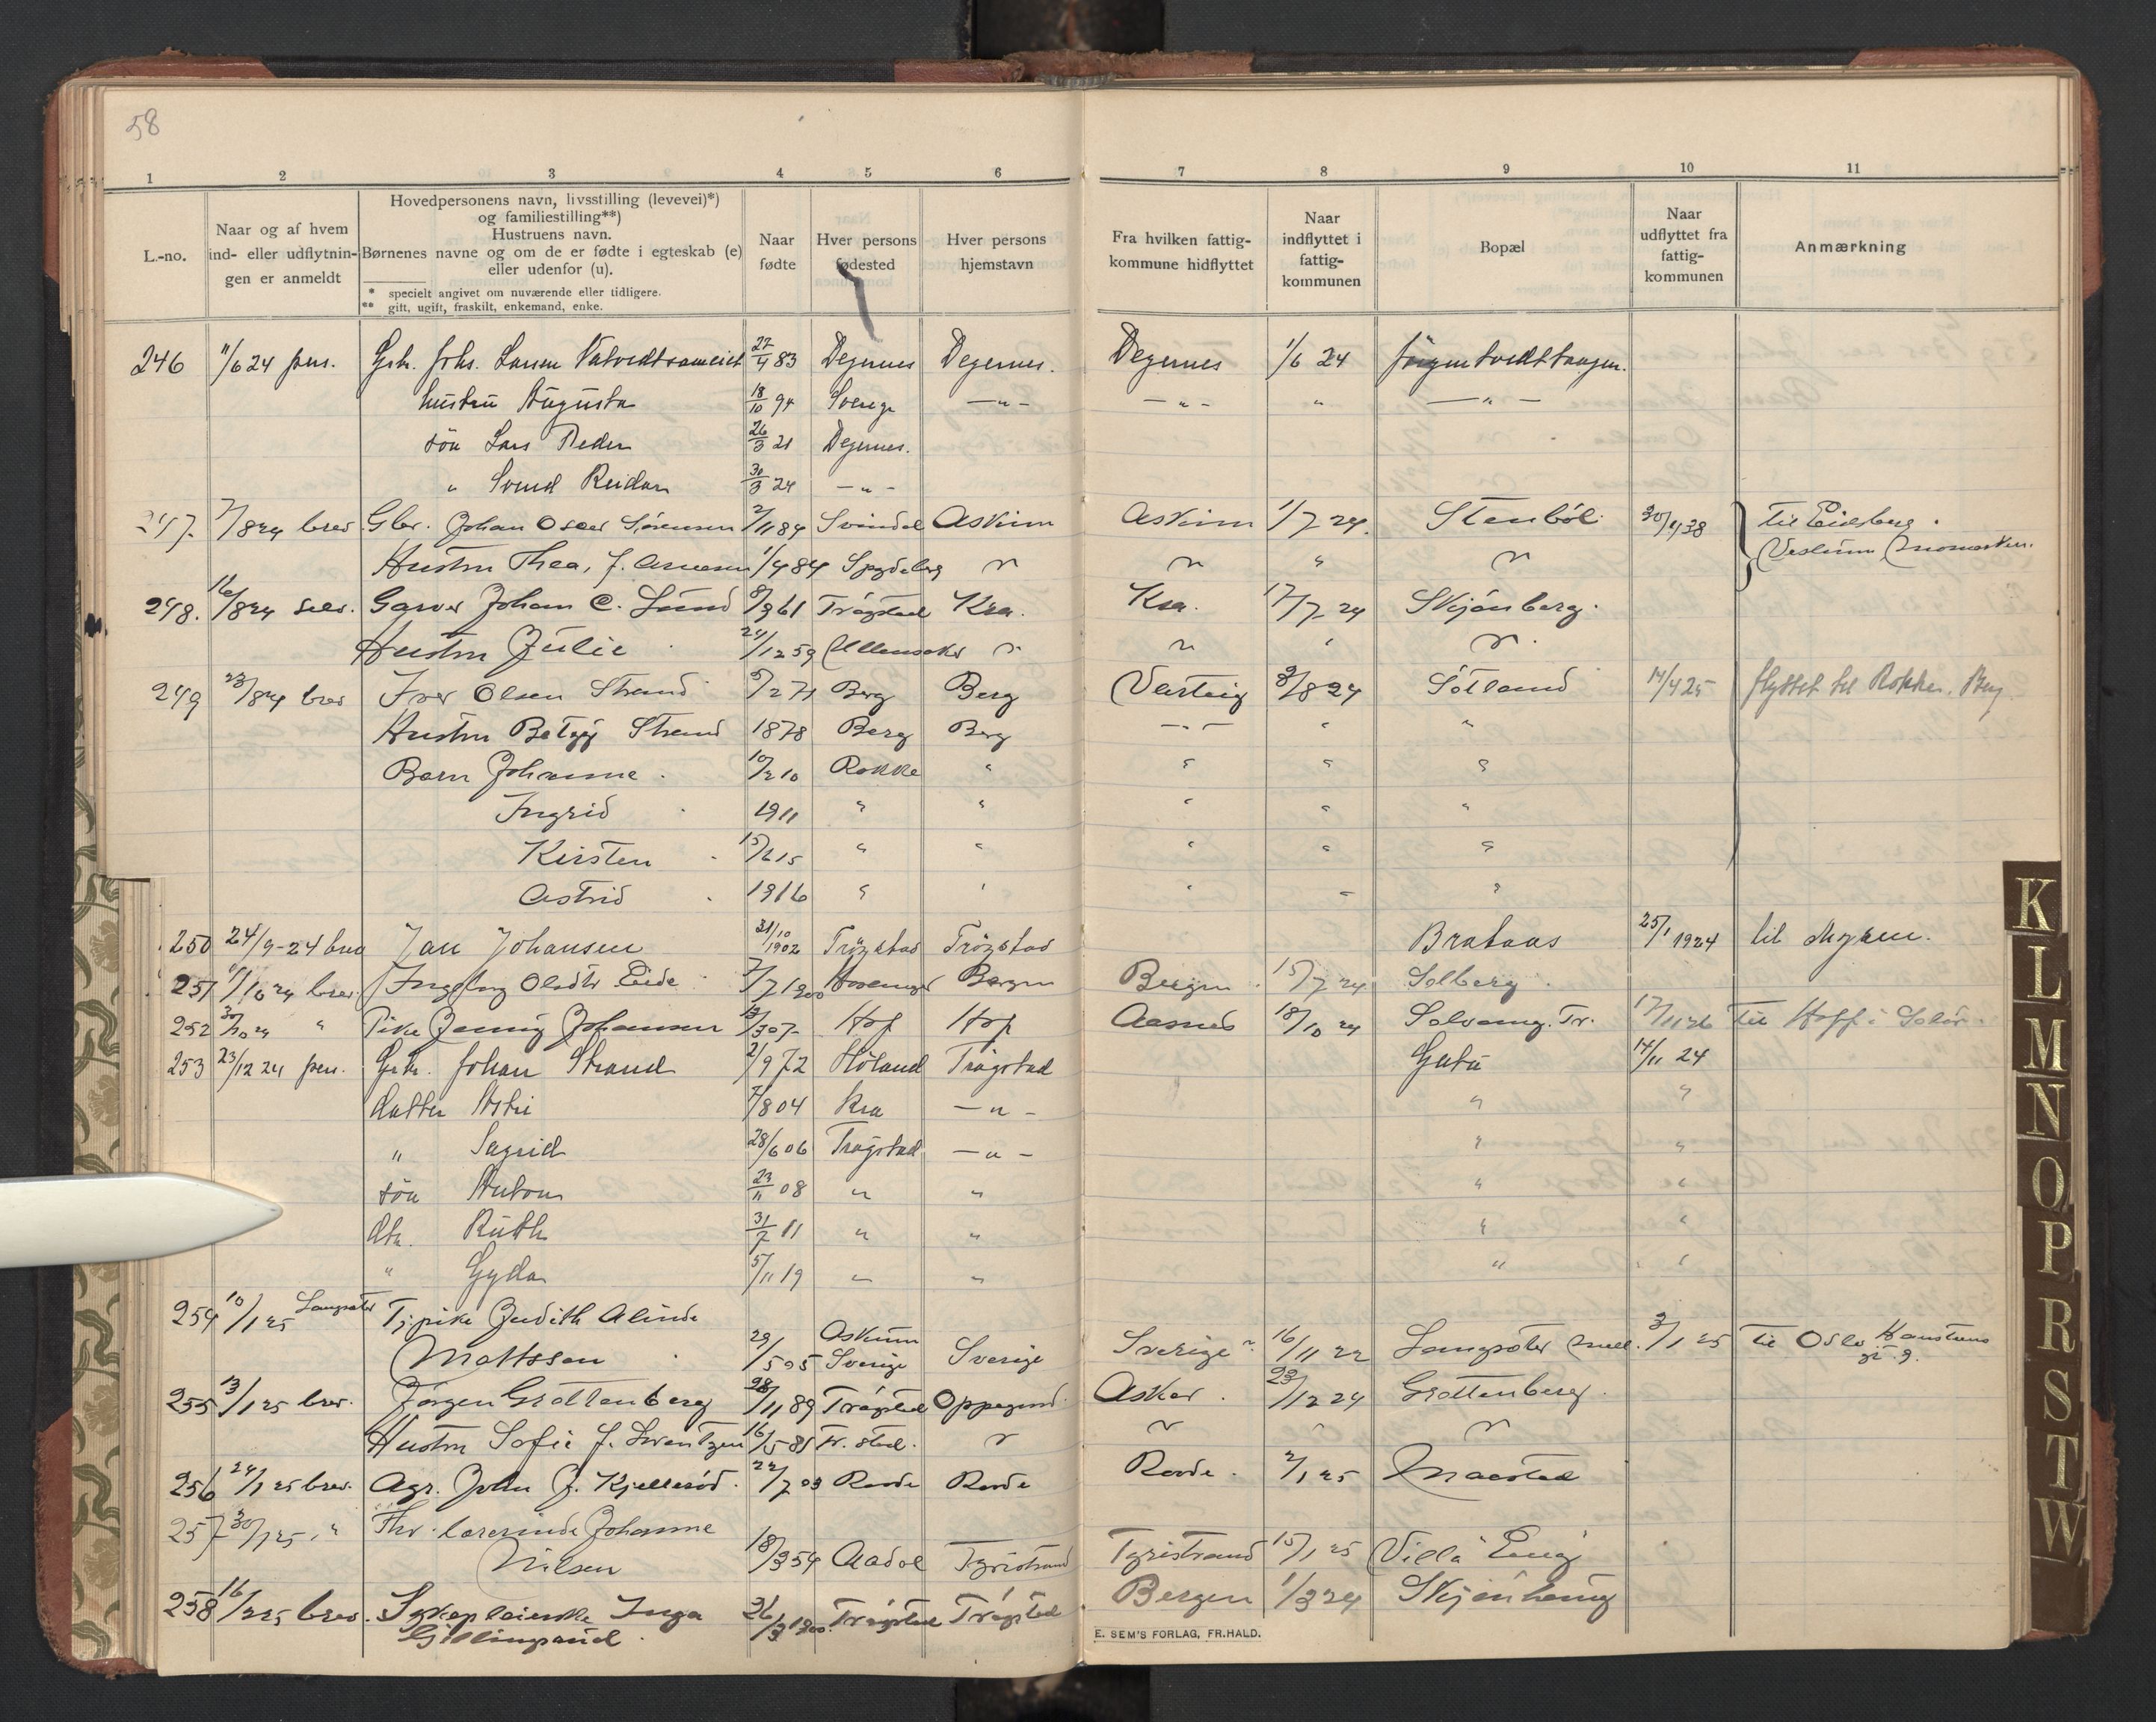 58
1 2 3 4 5 6 7 8 9 10 11
L.-no.
Naar og af hvem
ind- eller udflytnin-
gen er anmeldt
Hovedpersonens navn, livsstilling (levevei)*)
og familiestilling**)
Hustruens navn.
Børnenes navne og om de er fødte i egteskab (e)
eller udenfor (u).
* specielt angivet om nuværende eller tidligere.
** gift, ugift, fraskilt, enkemand, enke.
Naar
fødte
Hver persons
fødested
Hver persons
hjemstavn
Fra hvilken fattig-
kommune hidflyttet
Naar
indflyttet i
fattig-
kommunen
Bopæl
Naar
udflyttet fra
fattig-
kommunen
Anmærkning
246 11/6 24 pers. Grbr. Johs. Larsen 27/4 83 Degernes Degernes. Degernes 1/6 24
hustru Augusta 18/10 94 Sverige —"— —"— " —"—
søn Lars Peder 26/3 21 Degernes.
" Svend Reidar 30/3 24 —"—
247. 7/8 24 brev Gbr. Johan Oscar Sørensen 2/11 84 Svindal Askim Askim 1/7 24. Stenböl 30/4 38 Til Eidsberg.
Hustru Thea, f. Arnesen 1/4 84 Spydeberg " " " "
248. 16/8 24 selv. Garver Johan C. Lund 8/9 61 Trögstad Kra. Kra. 17/7 24 Skjönberg.
Hustru Julie 24/12 59 Ullensaker " " " "
249 23/8 24 brev Iver Olsen Strand 9/2 71 Berg Berg Varteig 8/8 24 Sötland 14/4 25 flyttet til Rokke. Berg
Hustru Betzy Strand 1878 Berg Berg —"— " "
Barn Johanne 10/2 10 Rokke " " " "
Ingrid 1911 " " " " "
Kirsten 15/2 15 " " " " "
Astrid 1916 " " " " "
250 24/9-24 brev Jan Johansen 31/10 1902 Trögstad Trögstad Brataas 25/1 1924 til Mysen.
251 1/10 24 brev Oldtr Eide 7/7 1900 Bergen Bergen 15/7 24 Solberg
252 30/10 24 " Pike Jenny Johansen 07 Hof Hof Aasnes 18/10 24 Solvang. Tr. 17/11 26 til Hoff i Solör.
253 23/12 24 pers. Grbr. Johan Strand 2/9 72 Höland Trögstad Gutu 14/11 24
datter Astri 7/8 04 Kra —"— " "
" Sigrid 28/6 06 Trögstad —"— " "
søn Anton 23/11 08 " " " "
dtr. Ruth 31/7 11 " " " "
" Gyda 5/11 19 " " " "
254 10/1 25 Langsæter Tj.pike Judith Alinde
Mattsson 29/5 05 Askim Sverige Sverige Sverige 16/11 22 Langsæter 3/1 25 til Oslo
255 13/1 25 brev. Jörgen Grottenberg 28/11 89 Trögstad Oppegaard Asker. 23/12 24 Grottenberg.
Hustru Sofie f. Lorentzen 16/5 85 Fr. stad. " " " "
256 24/1 25 brev. Agr. John J. Kjellesöd. 22/7 03 Raade Raade Raade. 2/1 25
257 30/1 25. " Fhv. lærerinde Johanne
Nilsen 18/3 54 Aadal Tyristrand Tyristrand 15/1 25 Villa Eng
258 16/2 25 brev. Sykepleierske Inga 26/3 1900. Trögstad Trögstad Bergen 1/3 24 Skjönhaug
Gillingsrud.
E. SEM'S FORLAG, FR.HALD.
K
L
M
N
O
P
R
S
T
W